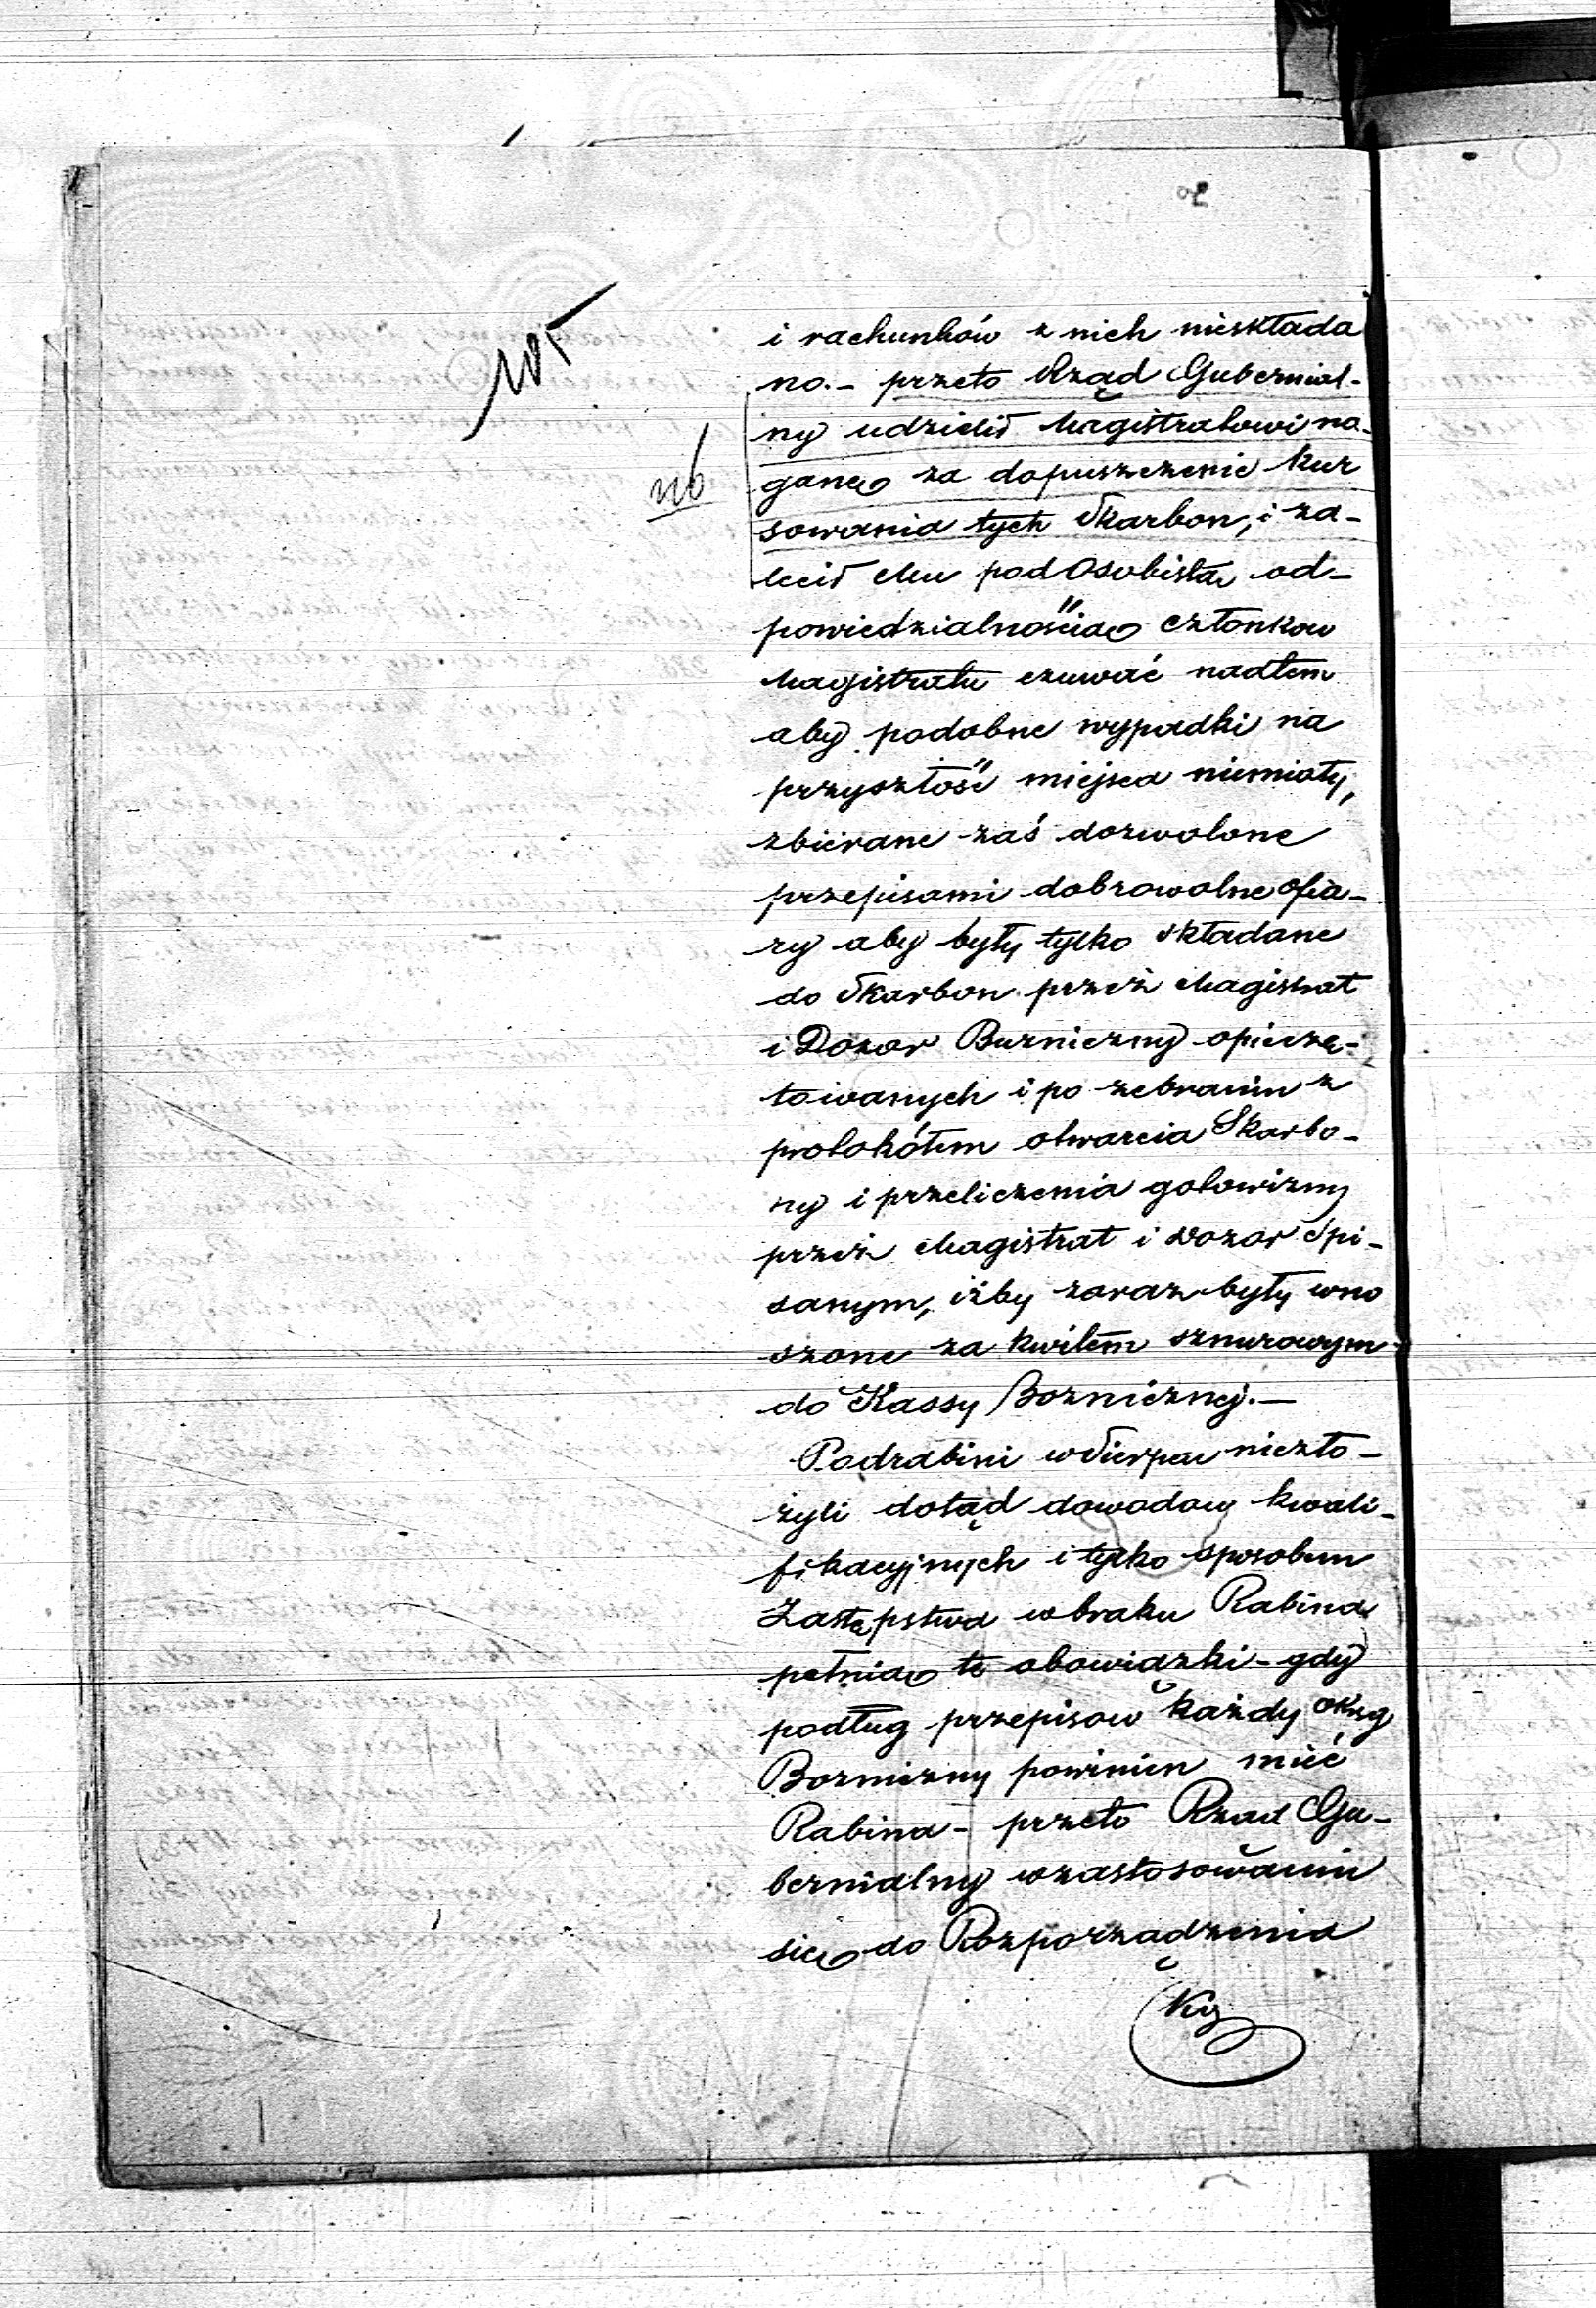 i rachunków z nich nieskłada
no.- przeto Rząd Gubernial-
ny udzielił Magistratowi na-
ganę za dopuszczenie kur
sowania tych Skarbon, i za-
lecił Mu pod Osobistą od-
powiedzialnością członkow
Magistratu czuwać nadtem
aby podobne wypadki na
przyszłość miejsca niemiały,
zbierane zaś dozwolone
przepisami dobrowolne ofia-
ry aby były tylko składane
do Skarbon przez Magistrat
i Dozor Bużniczny opieczę-
towanych i po zebraniu z
protokółem otwarcia Skarbo-
ny i przeliczenia gotowizny
przez Magistrat i Dozor Spi-
sanym, iżby zaraz były wno
szone za kwitem sznurowym
do Kassy Bozniczney.-
Podrabini w Sierpcu niezło-
żyli dotąd dowodow kwali-
fikacyjnych i tylko sposobem
Zastępstwa w braku Rabina
pełnią te obowiązki - gdy
podług przepisow każdy okrg
Bozniczny powinien mieć
Rabina - przeto Rząd Gu-
bernialny w zastosowaniu
się do Rozporządzenia